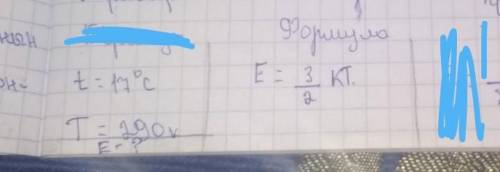 Формула
t = 17°C
E = 3/2 кТ.
T = 290к
E - ?